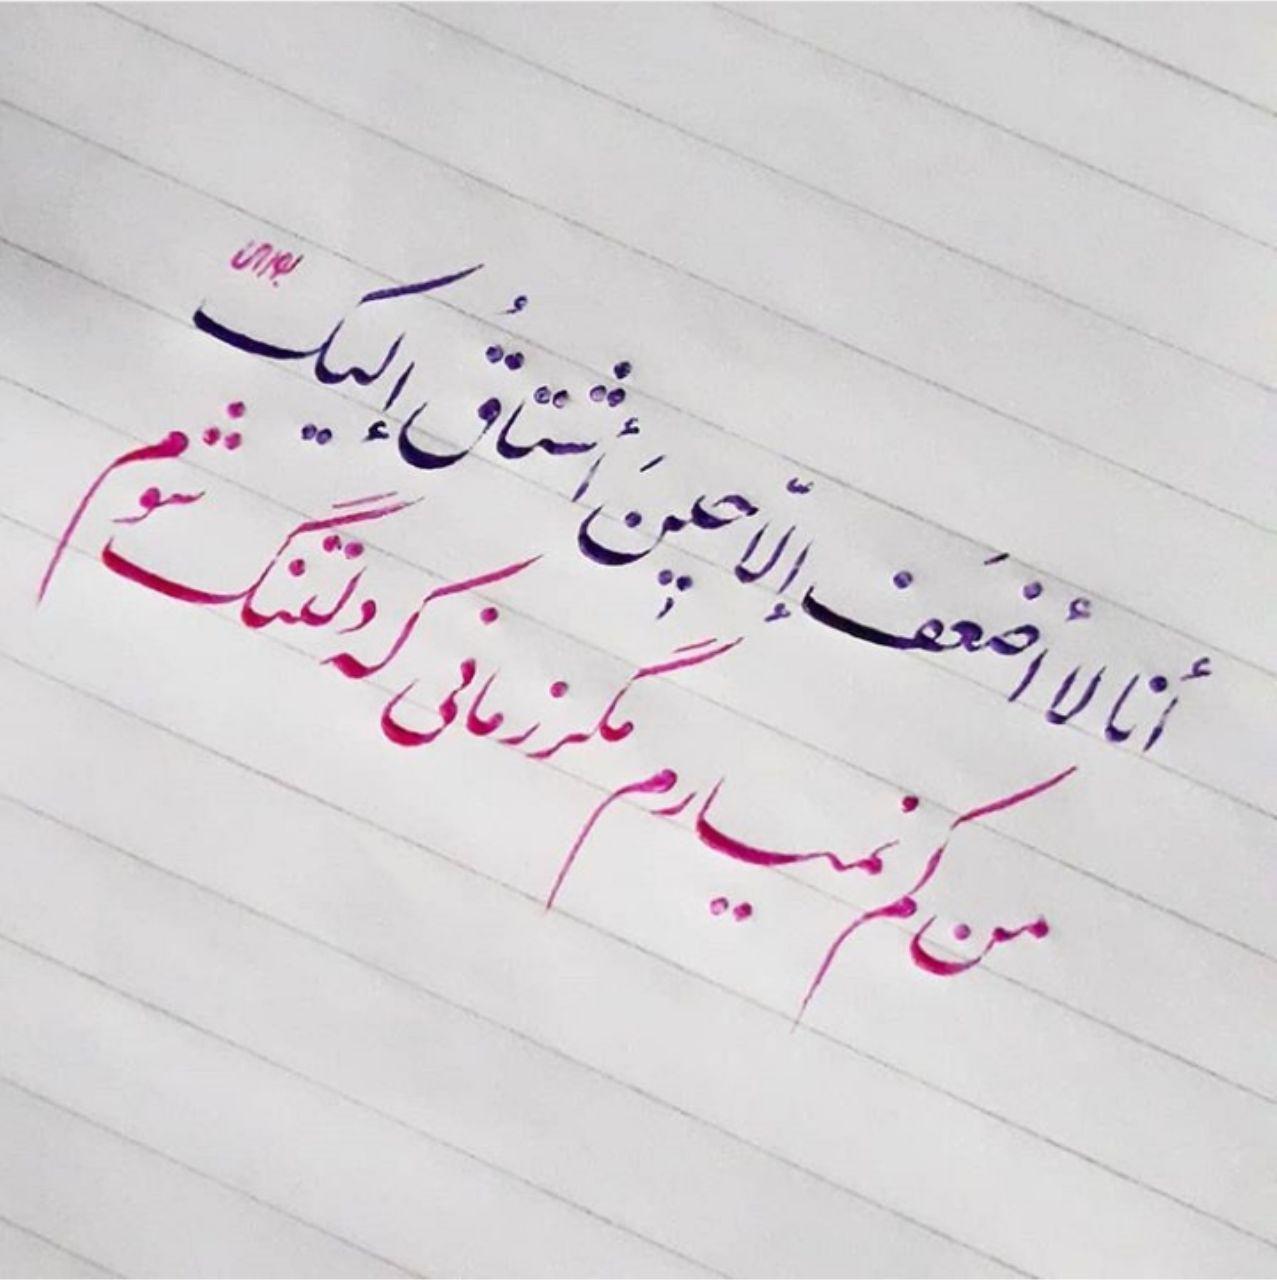 أنا لا أضعَف إلّا حِينَ أشتاقُ إليک
من کم نمیارم مگر زمانی که دلتنگ شوم